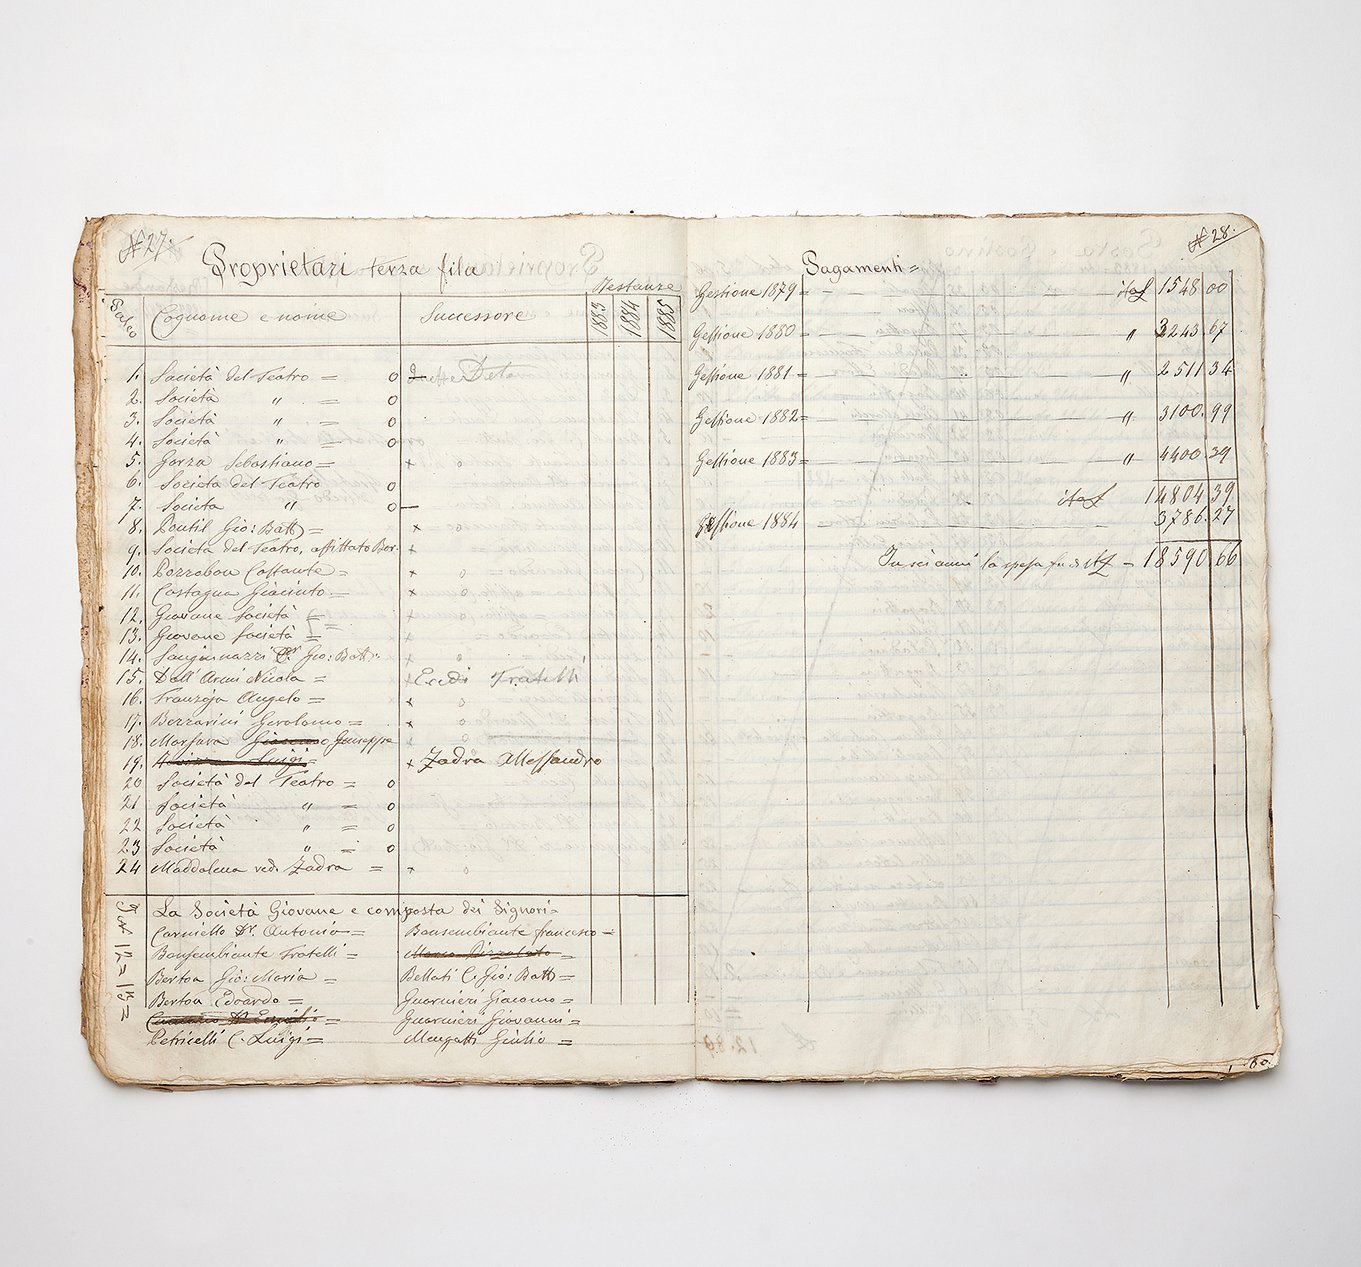 N 27.
Proprietari terza fila
Restanze
Palco
Cognome e nome
Successore
1883
1884
1885
1. Società del Teatro = o
2. Società " = o
3. Società " = o
4. Società " o
5. Gorza Sebastiano = x o
6. Società del Teatro o
7. Società " o
8. Pontil Gio: Batta = x o
9. Società del Teatro, affittato Bor. x
10. Pozzobon Costante = x o
11. Castagna Giacinto = x o
12. Giovane Società = x o
13. Giovane Società = x
14. Gio: Batta x o
15. Dall'Armi Nicola = x Eredi Fratelli
16. Franzoja Angelo = x o
17. Bezzarini Gerolamo = x o
18. Morsura Giacomo Giuseppe x o
19. Luigi = x Zadra Allessandro
20 Società del Teatro = o
21 Società " = o
22 Società " = o
23 Società " = o
24 Maddalena ved. Zadra = x o
12 = 13 =
La Società Giovane e composta dei Signori =
Carniello Dr. Antonio = Bonsembiante francesco =
Bonsembiante Fratelli = Marco Pizzolato =
Bertoa Gio: Maria = Bellati C. Gio: Batta =
Bertoa Edoardo = Guarnieri Giacomo =
Guarnieri Giovanni =
Petricelli C. Luigi = Mengotti Giulio =
N 28.
Pagamenti =
Gestione 1879 = itaL 1548 00
Gestione 1880 = " 3243.67
Gestione 1881 = " 2511 34
Gestione 1882 = " 3100.99
Gestione 1883 = " 4400.39
itaL 14804 39
Gestione 1884 = 3786.27
In sei anni la spesa fu di = 18590.66